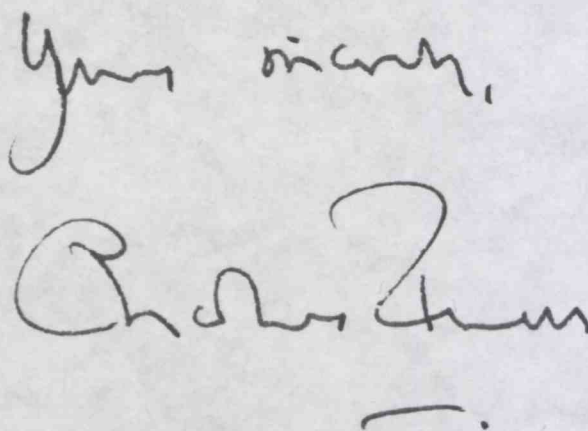 Yours sincerely,
Charles